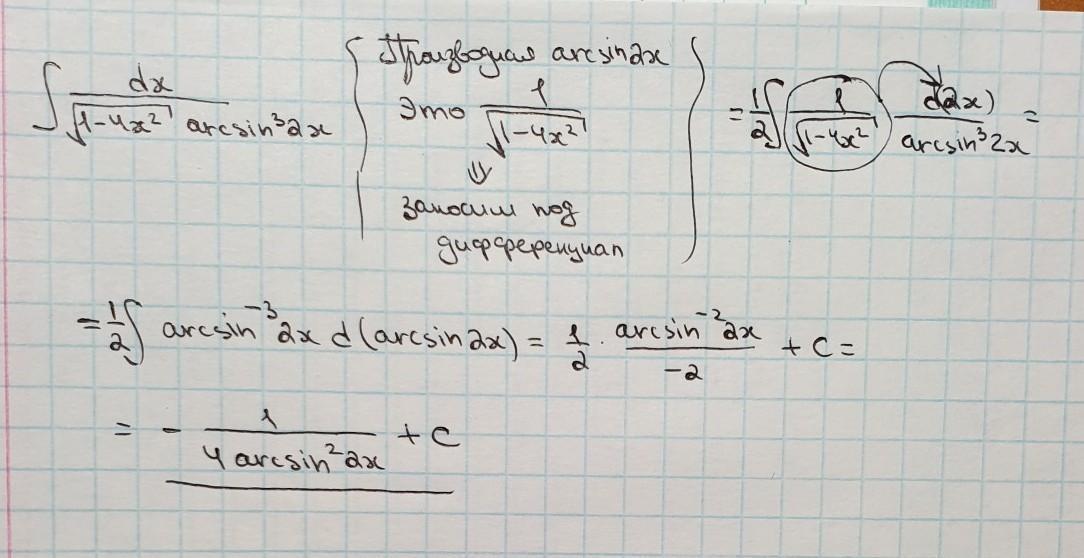 ∫ dx / (√(1-4x²) arcsin³2x) { Производная arcsin2x
Это 1/√(1-4x²)
⇓
заносим под
дифференциал } = 1/2 ∫ 1/√(1-4x²) d(2x)/arcsin³2x =
= 1/2 ∫ arcsin⁻³2x d(arcsin2x) = 1/2 · arcsin⁻²2x/-2 + C =
= - 1/(4 arcsin²2x) + C